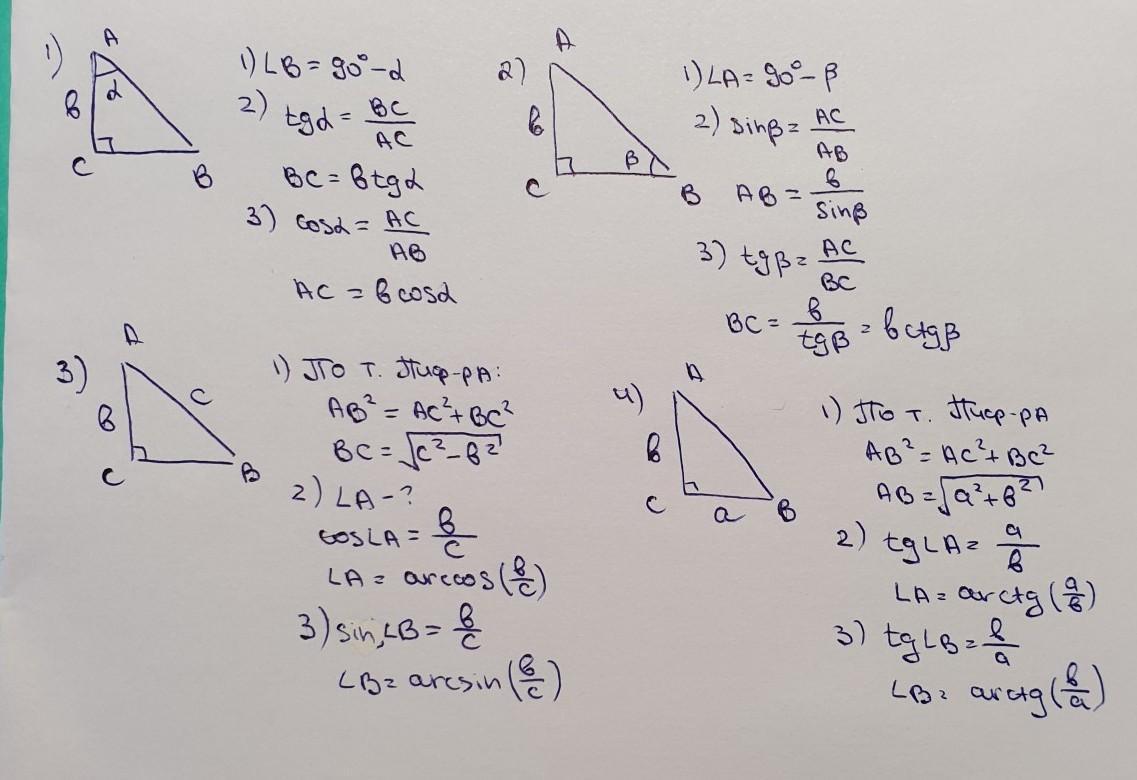 1)
A
α
в
C
B
1) ∠B = 90° - α
2) tgα = BC/AC
BC = в tgα
3) cosα = AC/AB
AC = в cosα
2)
A
в
β
C
B
1) ∠A = 90° - β
2) sinβ = AC/AB
AB = в/sinβ
3) tgβ = AC/BC
BC = в/tgβ = в ctgβ
3)
A
в
c
C
B
1) По т. Пиф-рА:
AB² = AC² + BC²
BC = √(c² - в²)
2) ∠A - ?
cos∠A = в/c
∠A = arccos(в/c)
3) sin∠B = в/c
∠B = arcsin(в/c)
4)
A
в
C
a
B
1) По т. Пиф-рА
AB² = AC² + BC²
AB = √(a² + в²)
2) tg∠A = a/в
∠A = arctg(a/в)
3) tg∠B = в/a
∠B = arctg(в/a)